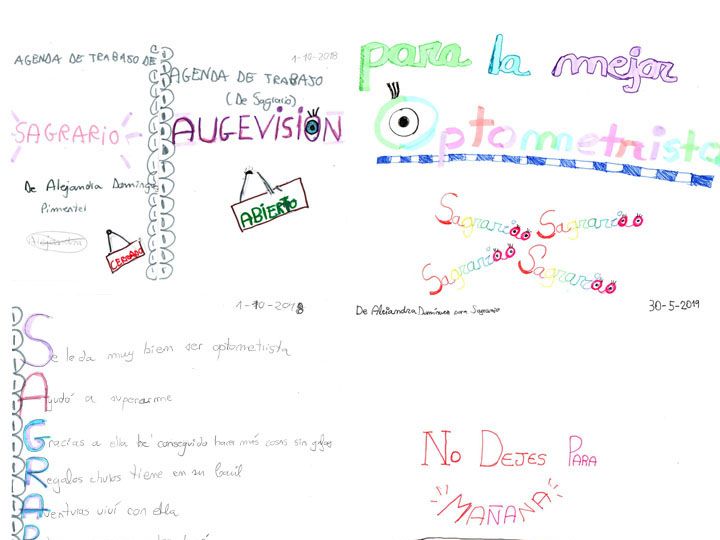 AGENDA DE TRABAJO DE
SAGRARIO
De Alejandra Domíngu
Pimentel
Alejandra
CERRADO
1-10-2018
AGENDA DE TRABAJO
(De Sagrario)
AUGEVISION
ABIERTO
para la mejor
Optometrista
Sagrario Sagrario
Sagrario Sagrario
De Alejandra Domínguez para Sagrario
30-5-2019
1-10-2018
Se le da muy biem ser optometrista
Ayudó a superarme
Gracias a ella he conseguido hacer más cosas sin gafas
Regalos chulos tiene em su baúl
Aventuras viví con ella
R
No DEJES PARA
MAÑANA